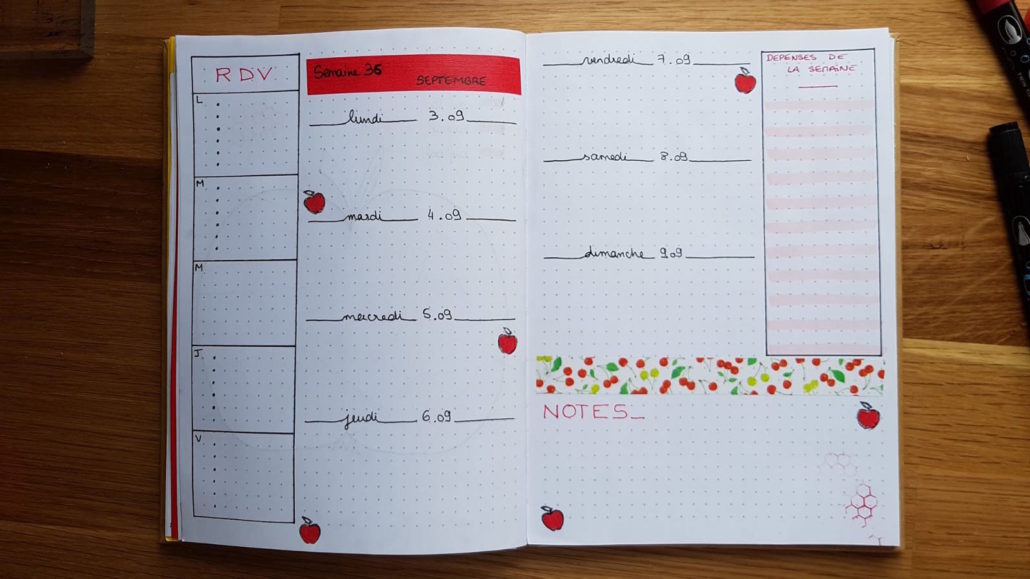 RDV
L
M
M
J
V
Semaine 36
SEPTEMBRE
lundi 3.09
mardi 4.09
mercredi 5.09
jeudi 6.09
vendredi 7.09
samedi 8.09
dimanche 9.09
DEPENSES DE
LA SEMAINE
NOTES_